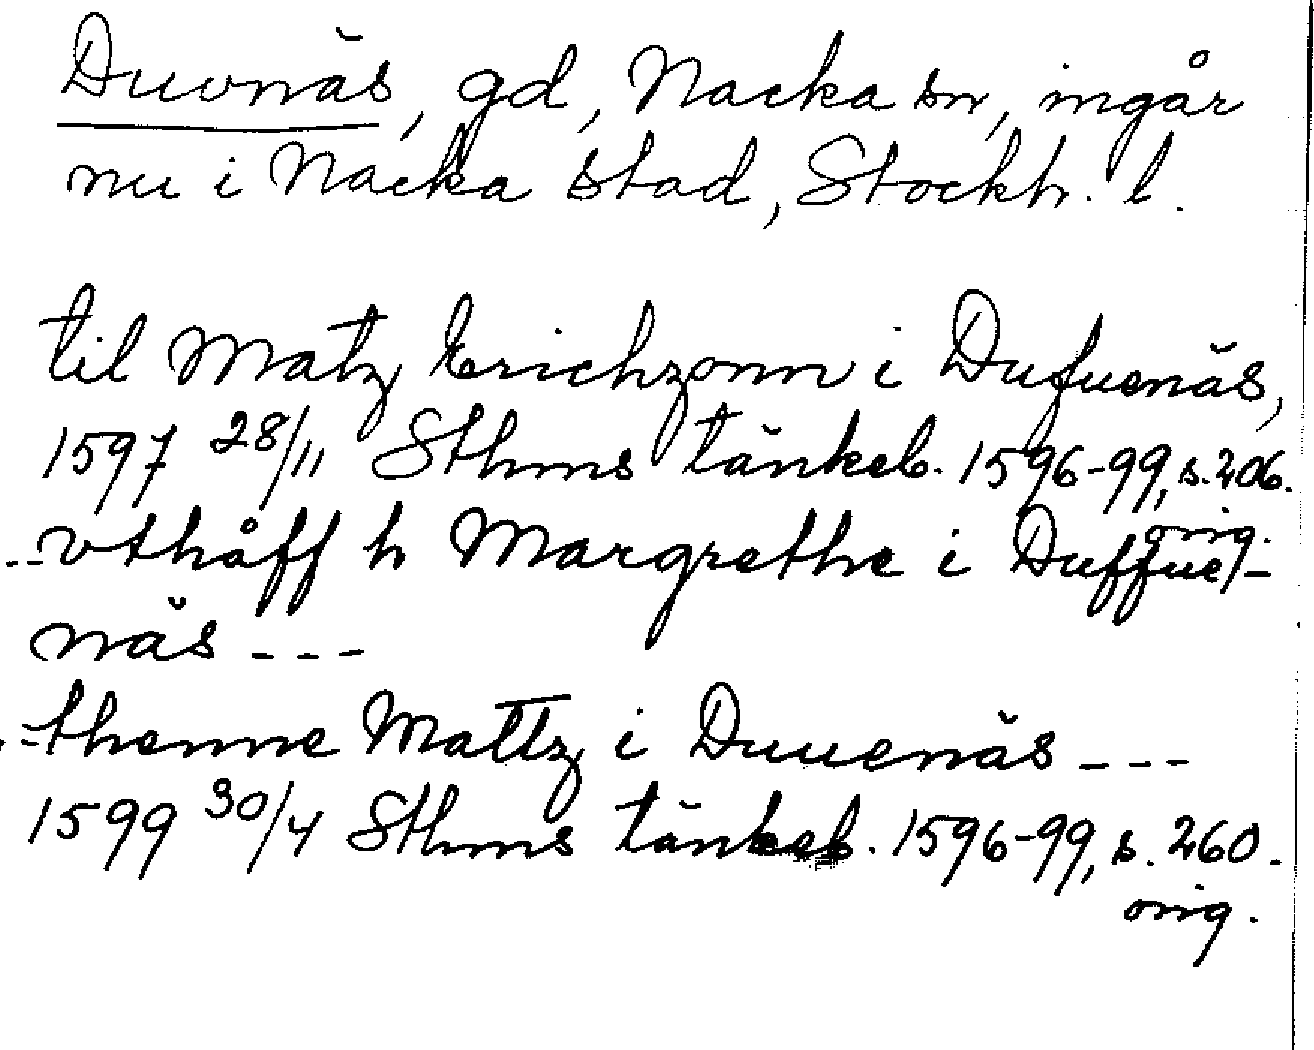 Duvnäs, gd, Nacka sn, ingår
nu i Nacka stad, Stockh. l.
til Matz Erichzonn i Dufuenäs,
1597 28/11 Sthms tänkeb. 1596-99, s. 206.
orig.
--vthåff h Margrethe i Duffue-
näs ---
--thenne Mattz i Duuenäs ---
1599 30/4 Sthms tänkeb. 1596-99, s. 260.
orig.